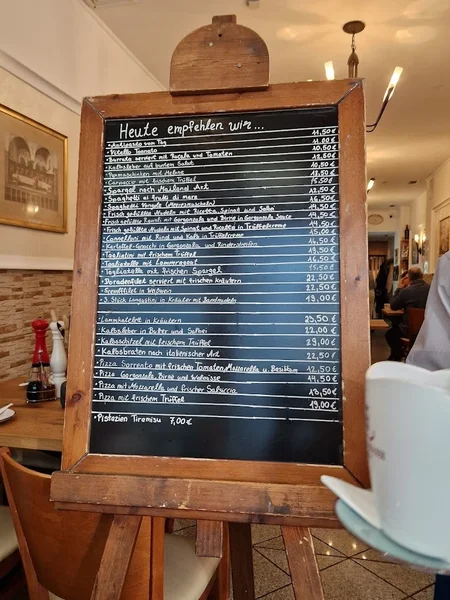 Heute empfehlen wir...
• Antipasto vom Tag 11,50€
• Vitello Tonnato
• Burrata serviert mit Rucola und Tomaten
• Kalbsleber auf buntem Salat
mit Melone
• Carpaccio mit frischem Trüffel
• Spargel nach Mailand Art
• Spaghetti ai frutti di mare 16,50€
• Spaghetti Vongole (Meeresmuscheln)
• Frisch gefüllte Nudeln mit Ricotta, Spinat und Salbei
• Frisch gefüllte mit Gorgonzola und Birne in Gorgonzola Sauce 14,50€
• Frisch gefüllte Nudeln mit Spinat und Ricotta in Trüffelcreme
• Cannelloni mit Rind und Kalb in
in Gorgonzola und Rinderstreifen
• Tagliatelle mit frischem Trüffel 19,50€
• Tagliatelle mit Lammragout 16,50€
• Tagliatelle mit frischem Spargel 15,50€
• Doradenfilet serviert mit frischen Kräutern 22,50€
• in Weißwein 22,50€
• 3. Stück Langustini in Kräuter mit 19,00€
• Lammkotelett in Kräutern 25,50€
• Kalbsleber in Butter und Salbei 22,00€
• Kalbschnitzel mit frischem Trüffel 29,00€
• Kalbsbraten nach italienischer Art 22,50€
• Pizza Sorrento mit frischen Tomaten, Mozzarella u. Basilikum 12,50€
• Pizza Gorgonzola, Birne und Walnüsse 14,50€
• Pizza mit Mozzarella und frischer Salsiccia 13,50€
• Pizza mit frischem Trüffel 19,00€
• Pistazien Tiramisu 7,00€